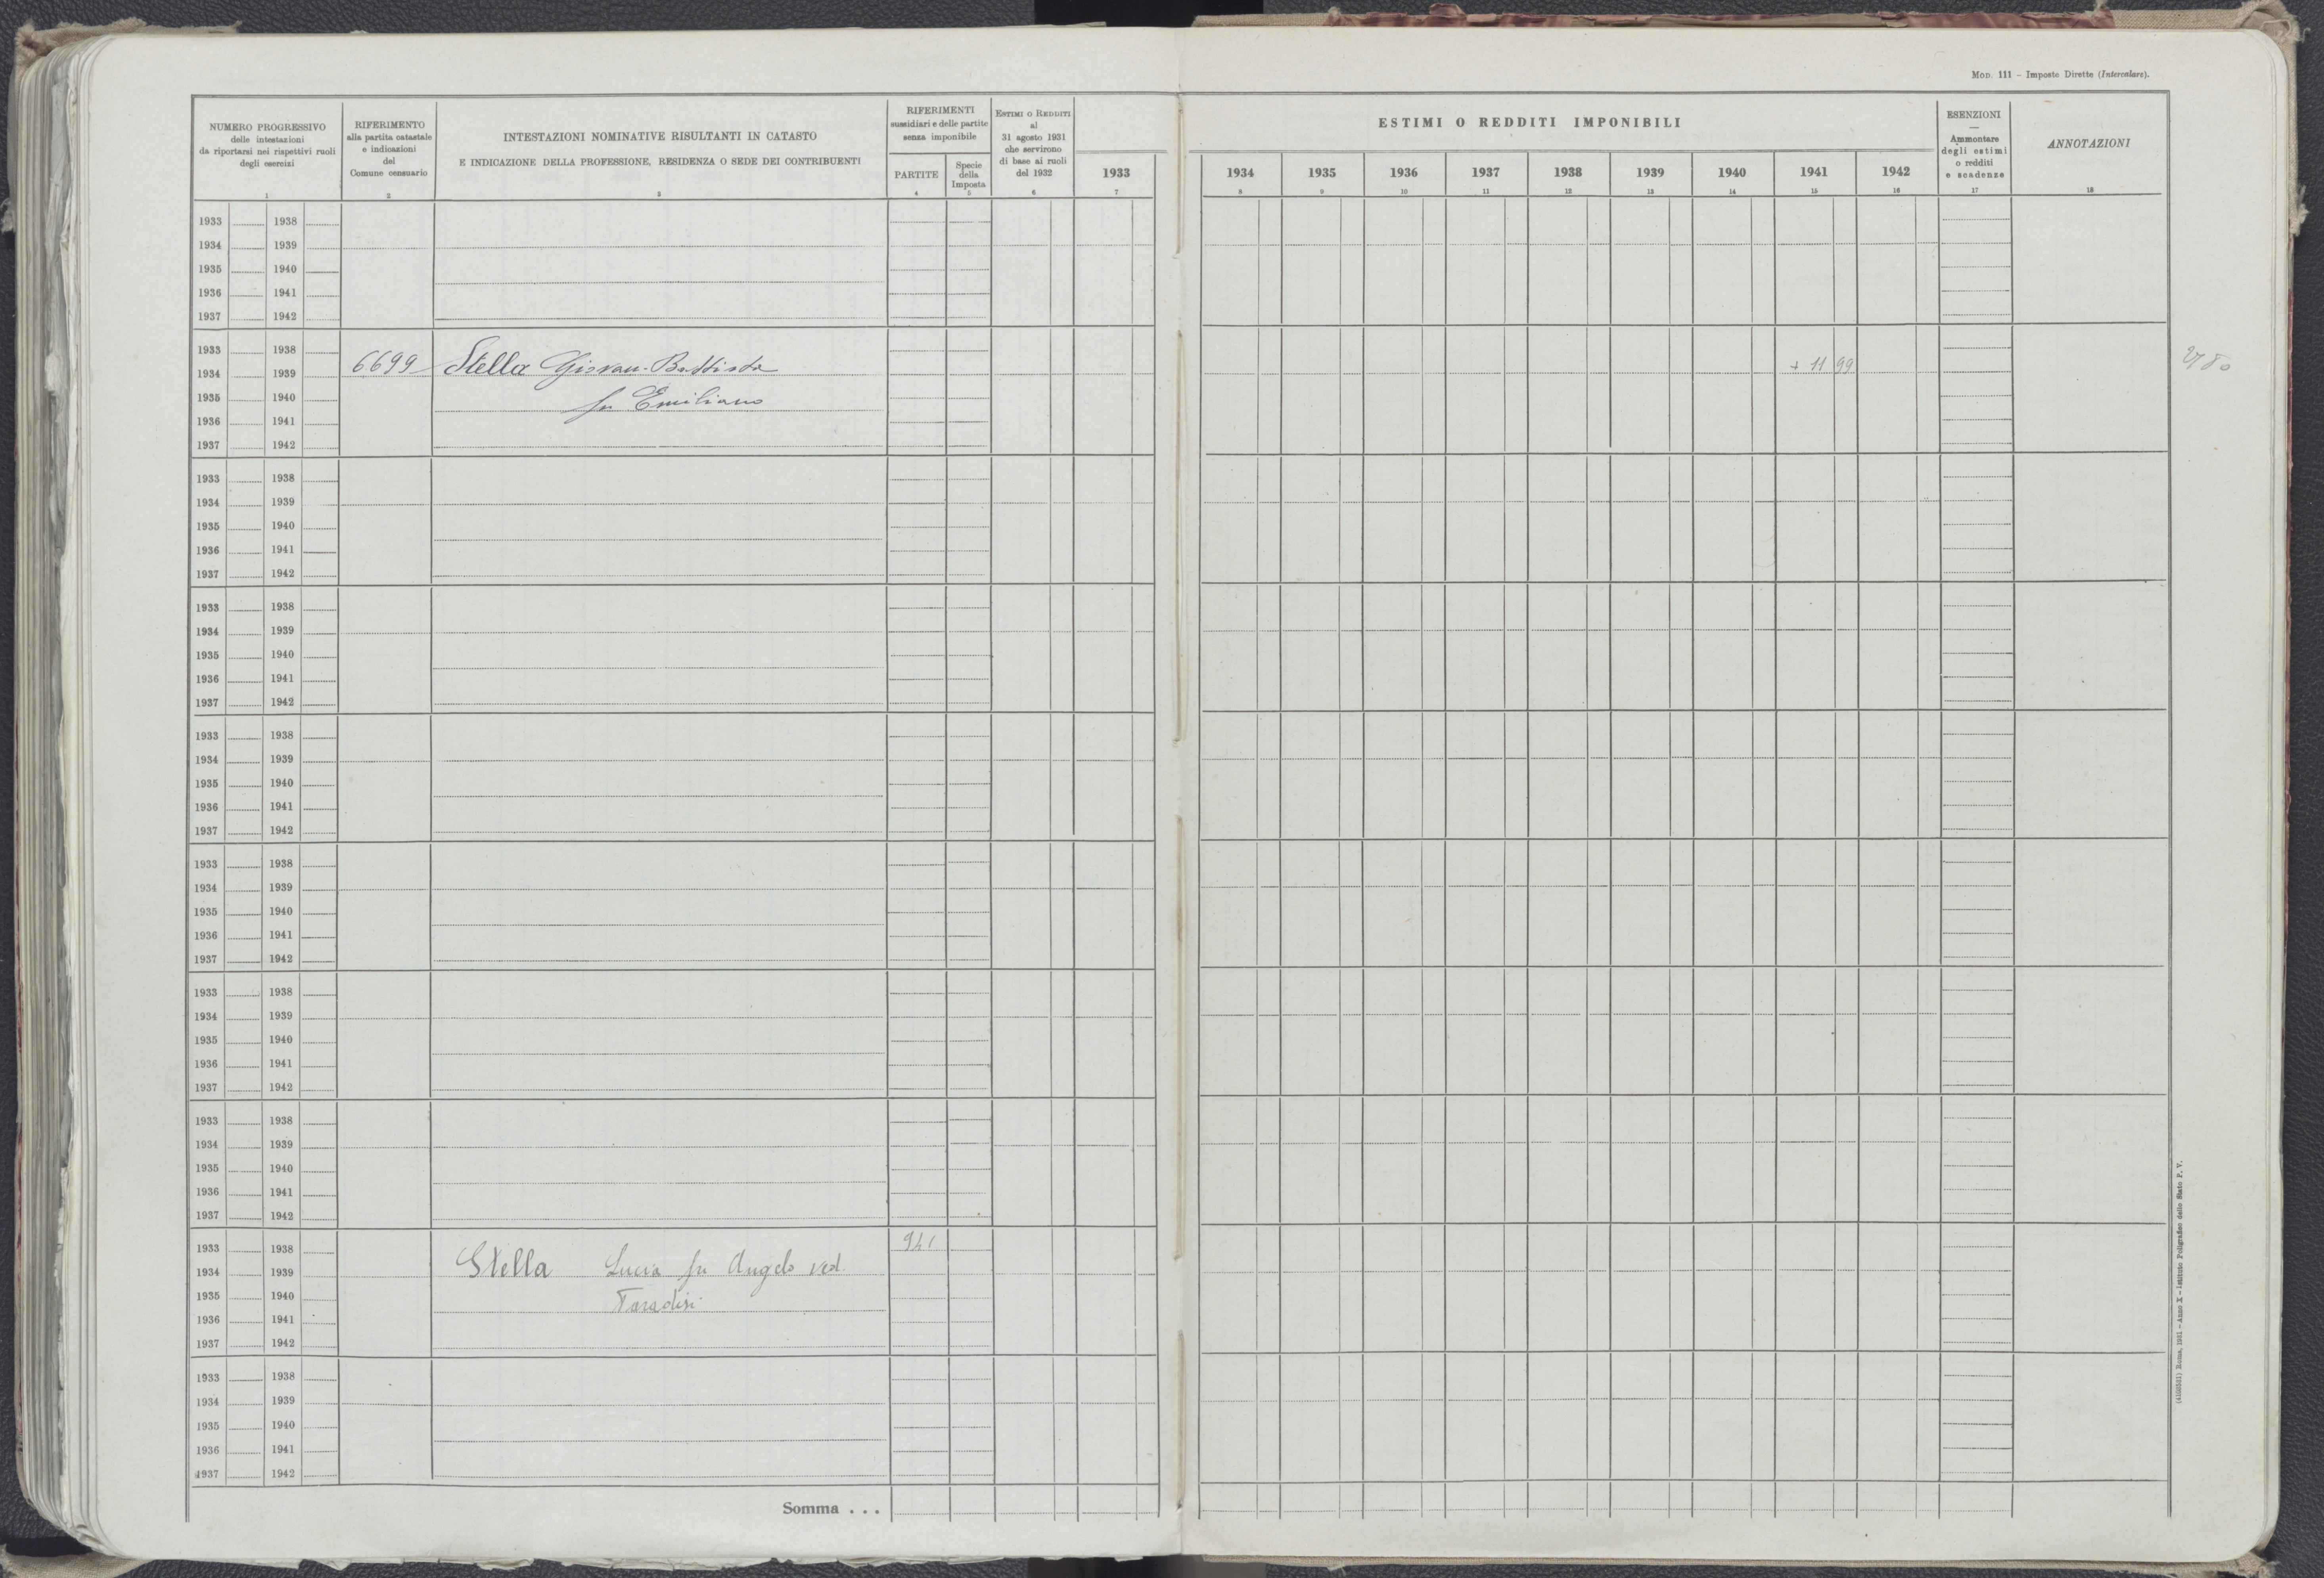 Mod. 111 – Imposte Dirette (Intercalare).
NUMERO PROGRESSIVO
delle intestazioni
da riportarsi nei rispettivi ruoli
degli esercizi
1
RIFERIMENTO
alla partita catastale
e indicazioni
del
Comune censuario
2
INTESTAZIONI NOMINATIVE RISULTANTI IN CATASTO
E INDICAZIONE DELLA PROFESSIONE, RESIDENZA O SEDE DEI CONTRIBUENTI
3
RIFERIMENTI
sussidiari e delle partite
senza imponibile
PARTITE
4
Specie
della
Imposta
5
Estimi o Redditi
al
31 agosto 1931
che servirono
di base ai ruoli
del 1932
6
1933
7
ESTIMI O REDDITI IMPONIBILI
1934 1935 1936 1937 1938 1939 1940 1941 1942
8 9 10 11 12 13 14 15 16
ESENZIONI
—
Ammontare
degli estimi
o redditi
e scadenze
17
ANNOTAZIONI
18
1933 1938
1934 1939
1935 1940
1936 1941
1937 1942
1933 1938
1934 1939 6699 Stella Giovan-Battista + 11 99
1935 1940 fu Emiliano
1936 1941
1937 1942
1933 1938
1934 1939
1935 1940
1936 1941
1937 1942
1933 1938
1934 1939
1935 1940
1936 1941
1937 1942
1933 1938
1934 1939
1935 1940
1936 1941
1937 1942
1933 1938
1934 1939
1935 1940
1936 1941
1937 1942
1933 1938
1934 1939
1935 1940
1936 1941
1937 1942
1933 1938
1934 1939
1935 1940
1936 1941
1937 1942
1933 1938 941
1934 1939 Stella Lucia fu Angelo ved.
1935 1940
1936 1941
1937 1942
1933 1938
1934 1939
1935 1940
1936 1941
1937 1942
Somma . . .
Roma, 1931 – Anno X – Istituto Poligrafico dello Stato P. V.